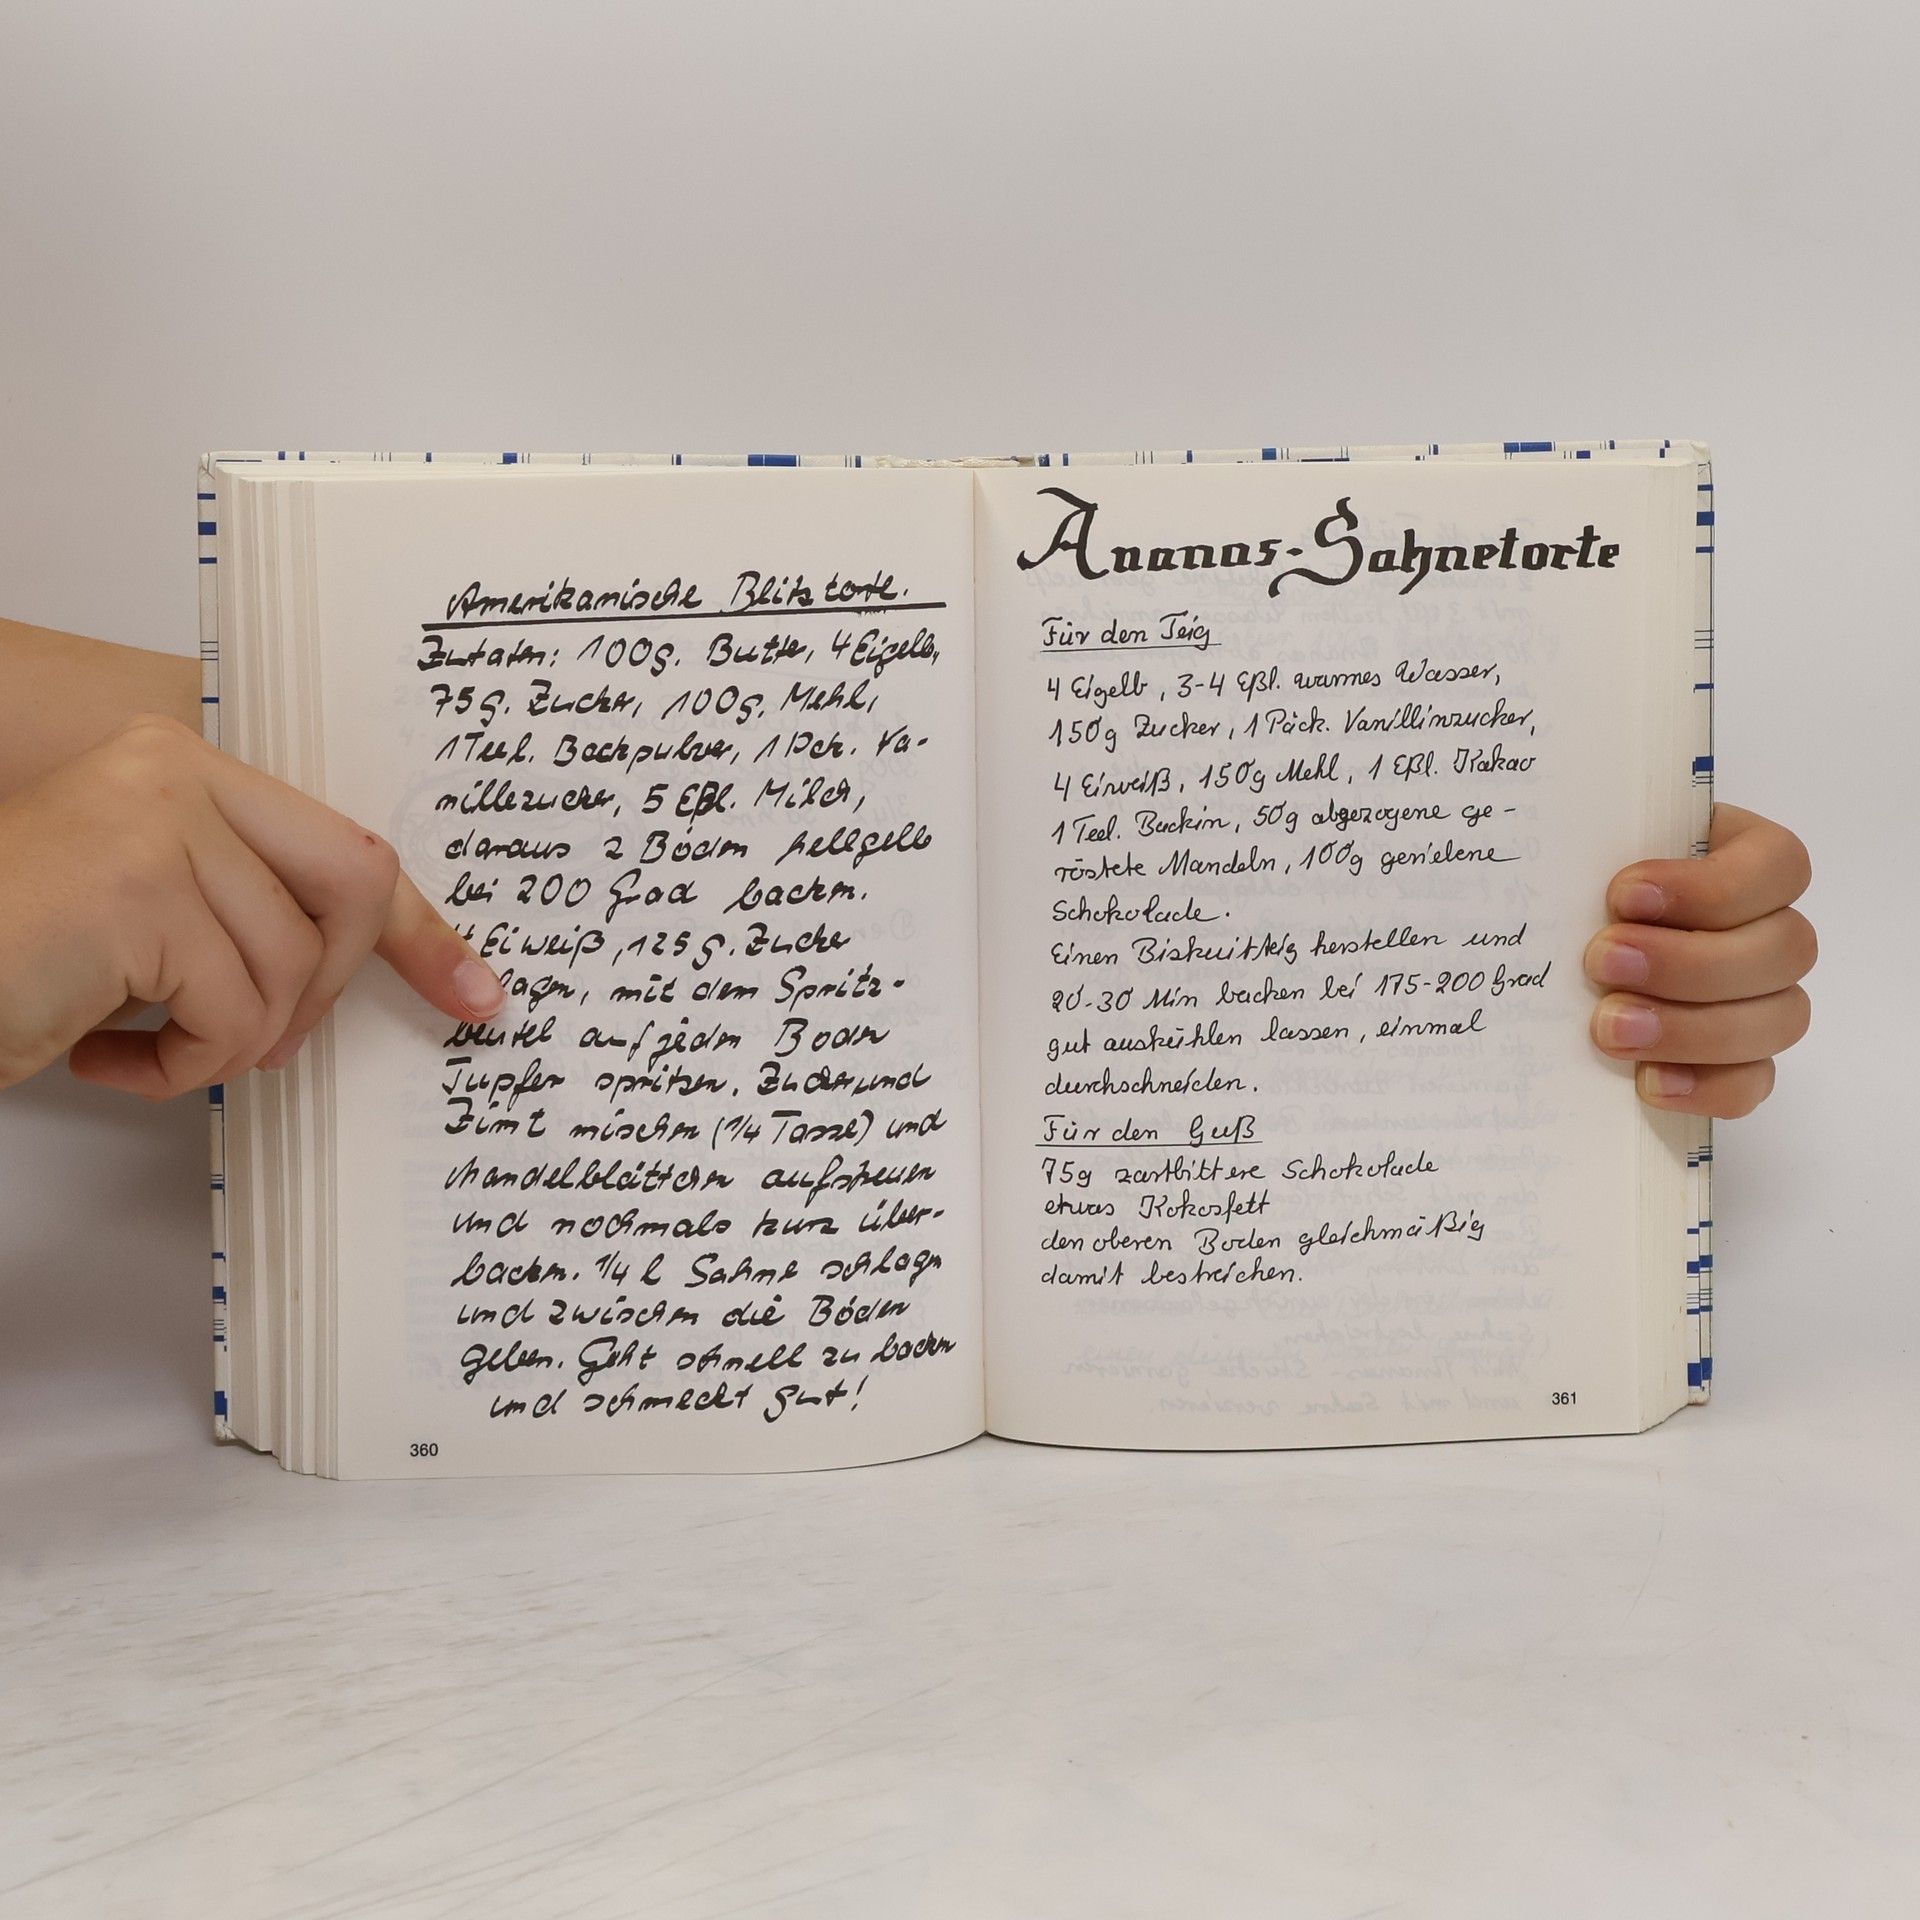 Amerikanische Blitztorte.
Zutaten: 100g. Butter, 4 Eigelb,
75g. Zucker, 100g. Mehl,
1 Teel. Backpulver, 1 Pck. Va-
nillezucker, 5 Eßl. Milch,
daraus 2 Böden hellgelb
bei 200 Grad backen.
Eiweiß, 125 g. Zucker
lagen, mit dem Spritz-
beutel auf jeden Boden
Tupfer spritzen. Zucker und
Zimt mischen (1/4 Tasse) und
Mandelblättchen aufstreuen
und nochmals kurz über-
backen. 1/4 l Sahne schlagen
und zwischen die Böden
geben. Geht schnell zu backen
und schmeckt gut!
360
Ananas-Sahnetorte
Für den Teig
4 Eigelb, 3-4 Eßl. warmes Wasser,
150g Zucker, 1 Päck. Vanillinzucker,
4 Eiweiß, 150g Mehl, 1 Eßl. Kakao
1 Teel. Backin, 50g abgezogene ge-
röstete Mandeln, 100g geriebene
Schokolade.
Einen Biskuitteig herstellen und
20-30 Min backen bei 175-200 Grad
gut auskühlen lassen, einmal
durchschneiden.
Für den Guß
75g zartbittere Schokolade
etwas Kokosfett
den oberen Boden gleichmäßig
damit bestreichen.
361